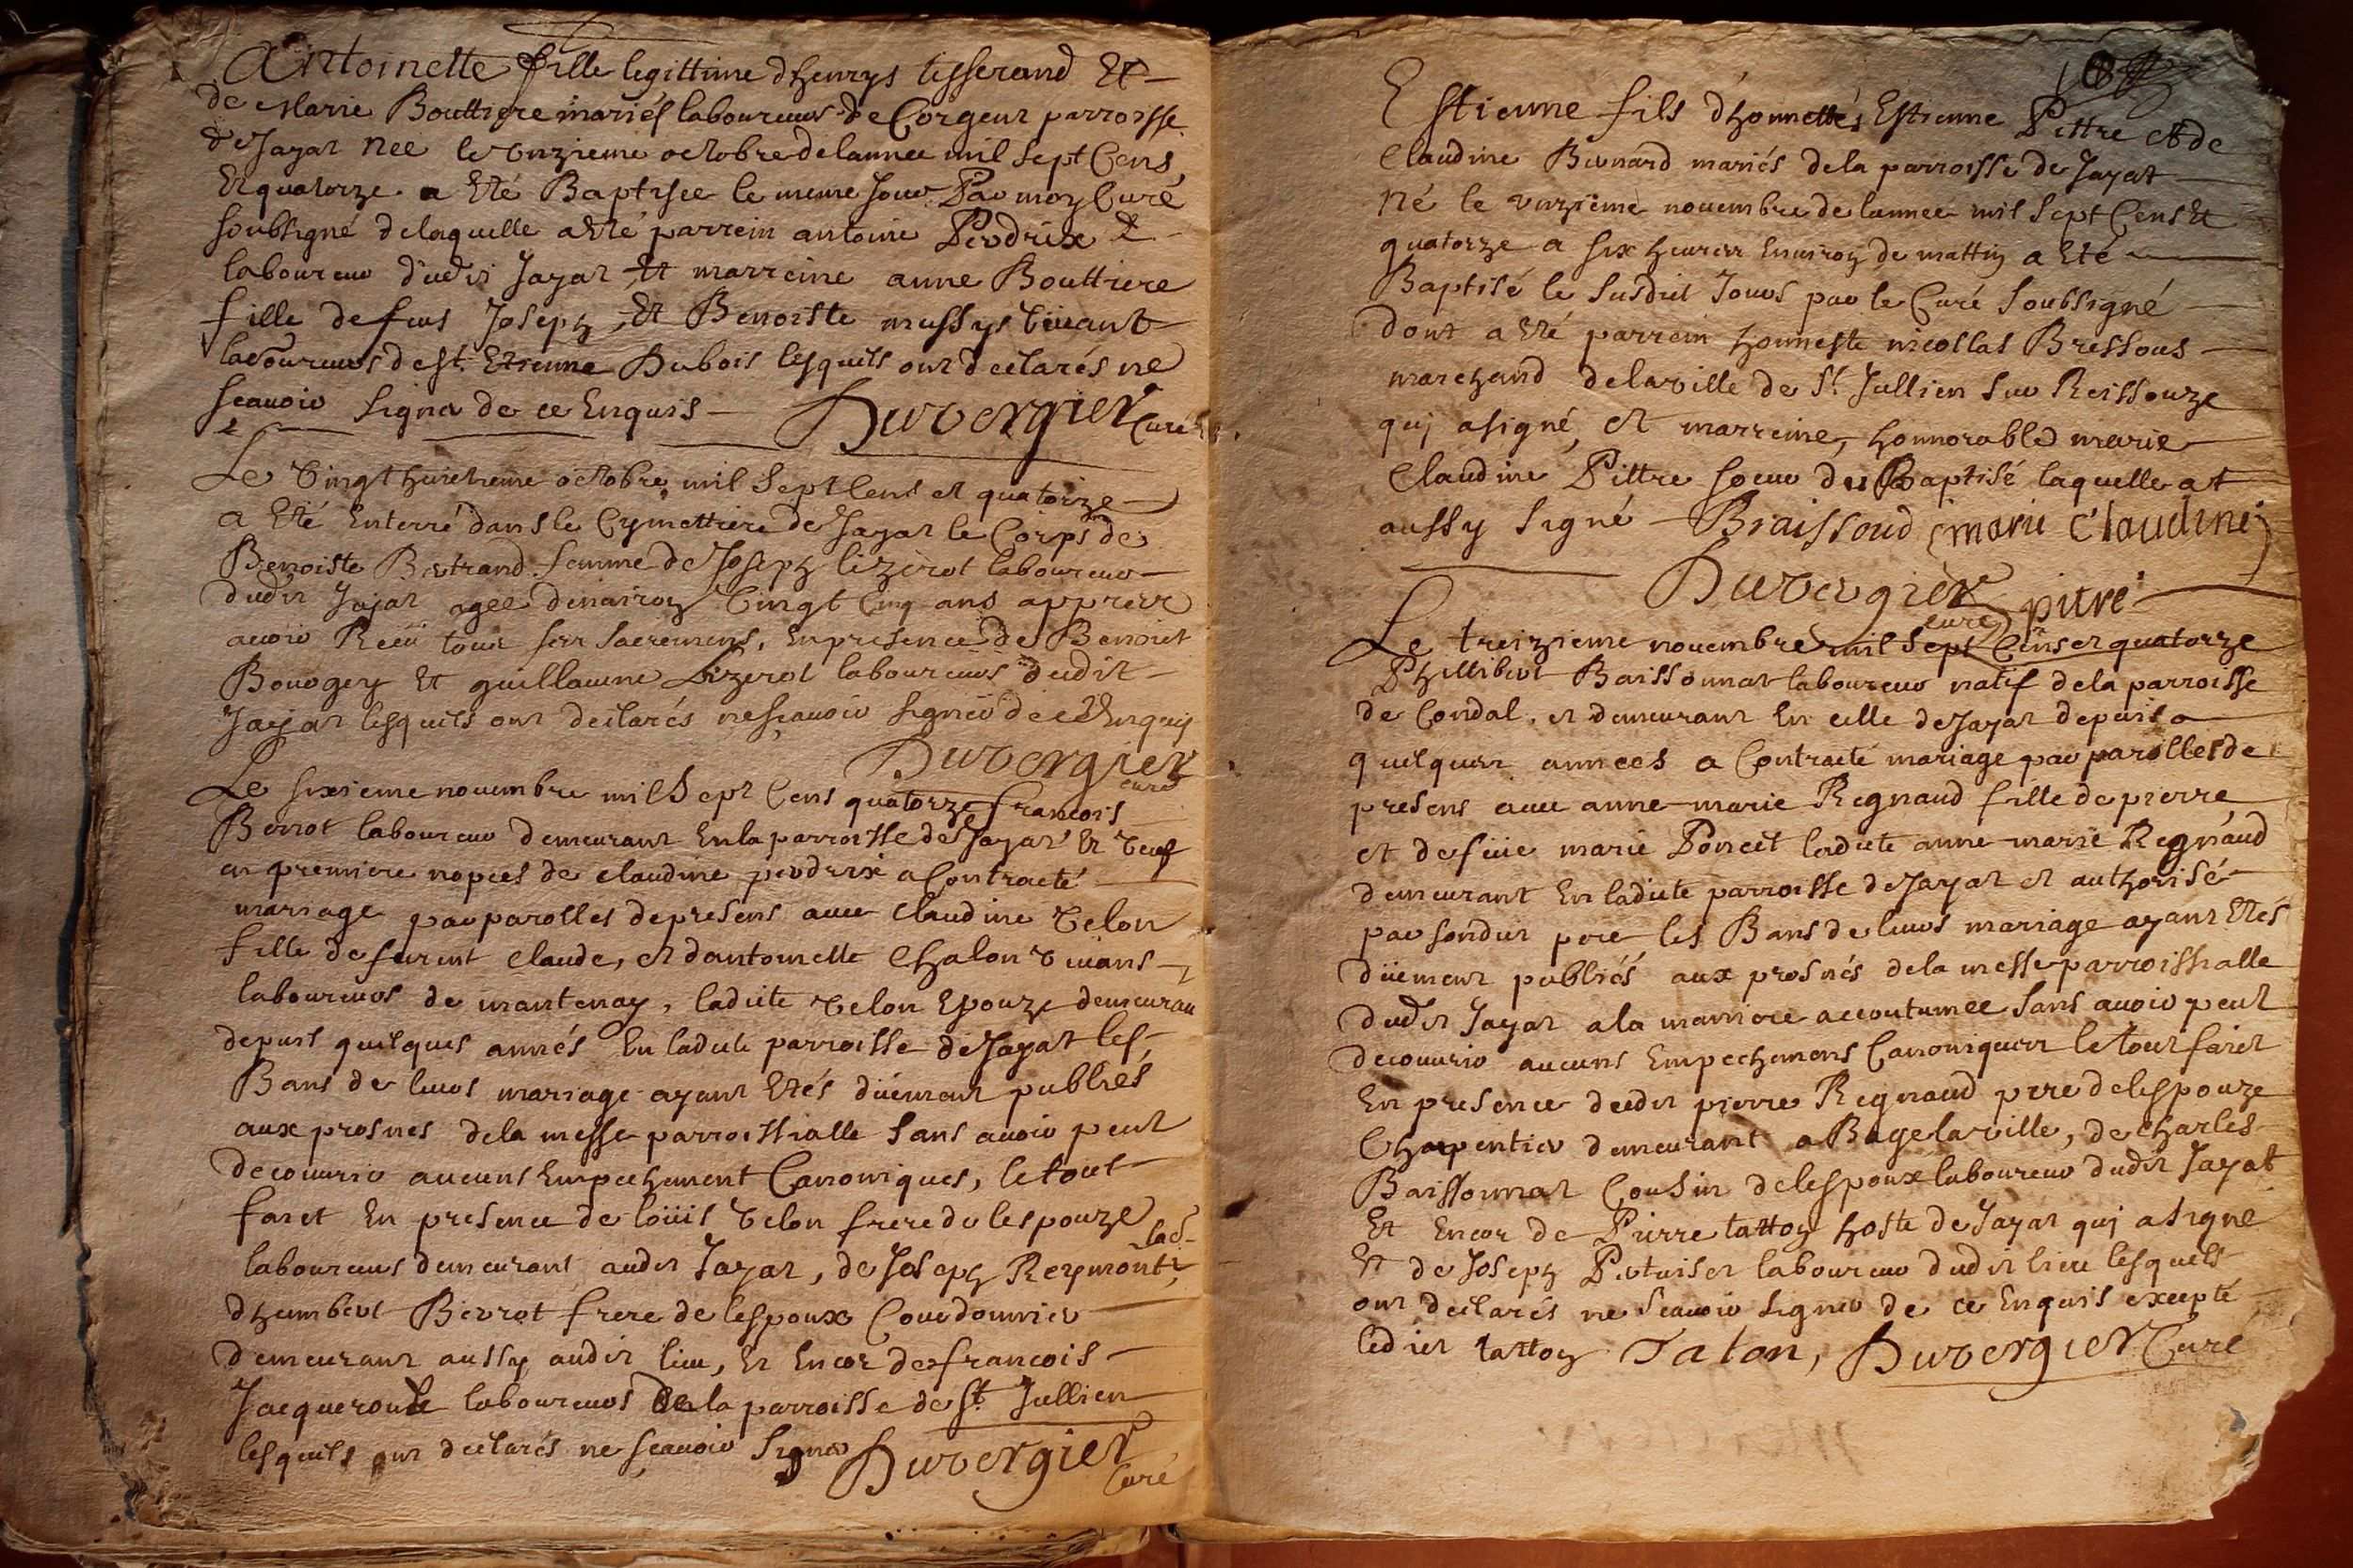 Antoinette fille legittime dhenrys tisserand Et
de Marie Bouttiere mariés laboureurs de Corgeur parroisse
de Jayat née le unzieme octobre de lannee mil sept Cens
Et quatorze a Eté Baptisee le meme Jour Par moy Curé
soubsigné delaquelle a Eté parrein antoine Perdrix
laboureur dudit Jayat Et marreine anne Bouttiere
fille de feus Joseph Et Benoiste mussys vivant
laboureurs de st. Etienne Dubois lesquels ont declarés ne
scauoir signer de ce Enquis Duvergier Curé
Le vingt huictieme octobre mil sept Cens et quatorze
a Eté Enterré dans le Cymettiere de Jayat le Corps de
Benoiste Bertrand femme de Joseph lizerot laboureur
dudit Jajat agee denairon vingt Cinq ans apprés
auoir Receü tous ses sacremens, En presence de Benoict
Bourgey Et guillaume Lizerot laboureurs dudit
Jayat lesquels ont declarés ne scauoir signer de ce Enquis
Duvergier curé
Le sixieme nouembre mil Sept Cens quatorze francois
Berrot laboureur demeurant En la parroisse de Jayat Et veuf
en premiere nopces de claudine perdrix a Contracté
mariage par parolles de presens auec claudine velon
fille de feurent claude, et dantoinette Chalon viuans
laboureurs de mantenay, ladite velon Epouze demeuran
depuis quelques annés En ladite parroisse de Jayat les
Bans de leurs mariage ayant Etés düement publiés
aux prosnes dela messe parroissialle sans auoir peut
decouurir aucuns Empechement Canoniques, le tout
faict En presence de loüis velon frere de lespouze
laboureurs demeurant audit Jayat, de Joseph Reymont
dhumbert Berrot frere de lespoux Courdonnier
demeurant aussy audit lieu, Et Encor de francois
Jacqueroule laboureurs de la parroisse de st. Jullien
lesquels ont declarés ne scauoir signer Duvergier Curé
Estienne fils dhonnettes Estienne Pittre et de
claudine Bernard mariés dela parroisse de Jayat
Né le unzieme nouembre de lannee mil sept Cens Et
quatorze a six heures Enuiron de mattin a Eté
Baptisé le susdit Jours par le Curé soubsigné
dont a Eté parrein honneste nicollas Bressous
marchand delaville de st. Jullien sur Reissouze
quj a signé, Et marreine, honnorable marie
claudine Pittre soeur du Baptisé laquelle at
aussy signé Braissoud marie claudine
Duvergier curé pitre
Le treizieme nouembre mil sept Cens et quatorze
Phillibert Baissonnat laboureur natif dela parroisse
de Condal, et demeurant En celle de Jayat depuis
quelques annees a Contracté mariage par parolles de
presens auec anne marie Regnaud fille de pierre
et de feüe marie Poncet ladite anne marie Regnaud
demeurant En ladite parroisse de Jayat et authorisé
par sondit pere les Bans de leurs mariage ayant Etés
düement publiés aux prosnés dela messe parroissialle
dudit Jayat a la maniere accoutumee sans auoir peut
decouurir aucuns Empechemens Canoniques le tout faict
En presence dudit pierre Regnaud pere de lespouze
Charpentier demeurant a Bagelaville, de charles
Baissonnat Cousin de lespoux laboureur dudit Jayat
Et Encor de Pierre tatton hoste de Jayat quj a signé
Et de Joseph Pertuiset laboureur dudit lieu lesquels
ont declarés ne scauoir signer de ce Enquis excepté
ledit tatton Talon, Duvergier Curé